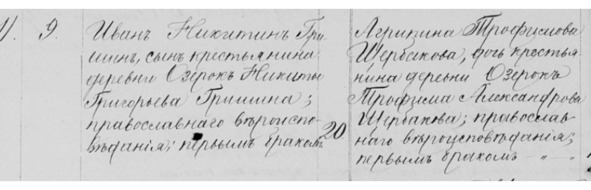 9. Иванъ Никитинъ Гри
шинъ, сынъ крестьянина
деревни Озерокъ Никиты
Григорьева Гришина;
православнаго вѣроиспо
вѣданія; первымъ бракомъ
20
Агрипина Трофимова
Щербакова, дочь крестья
нина деревни Озерокъ
Трофима Александрова
Щербакова; православ
наго вѣроисповѣданія;
первымъ бракомъ